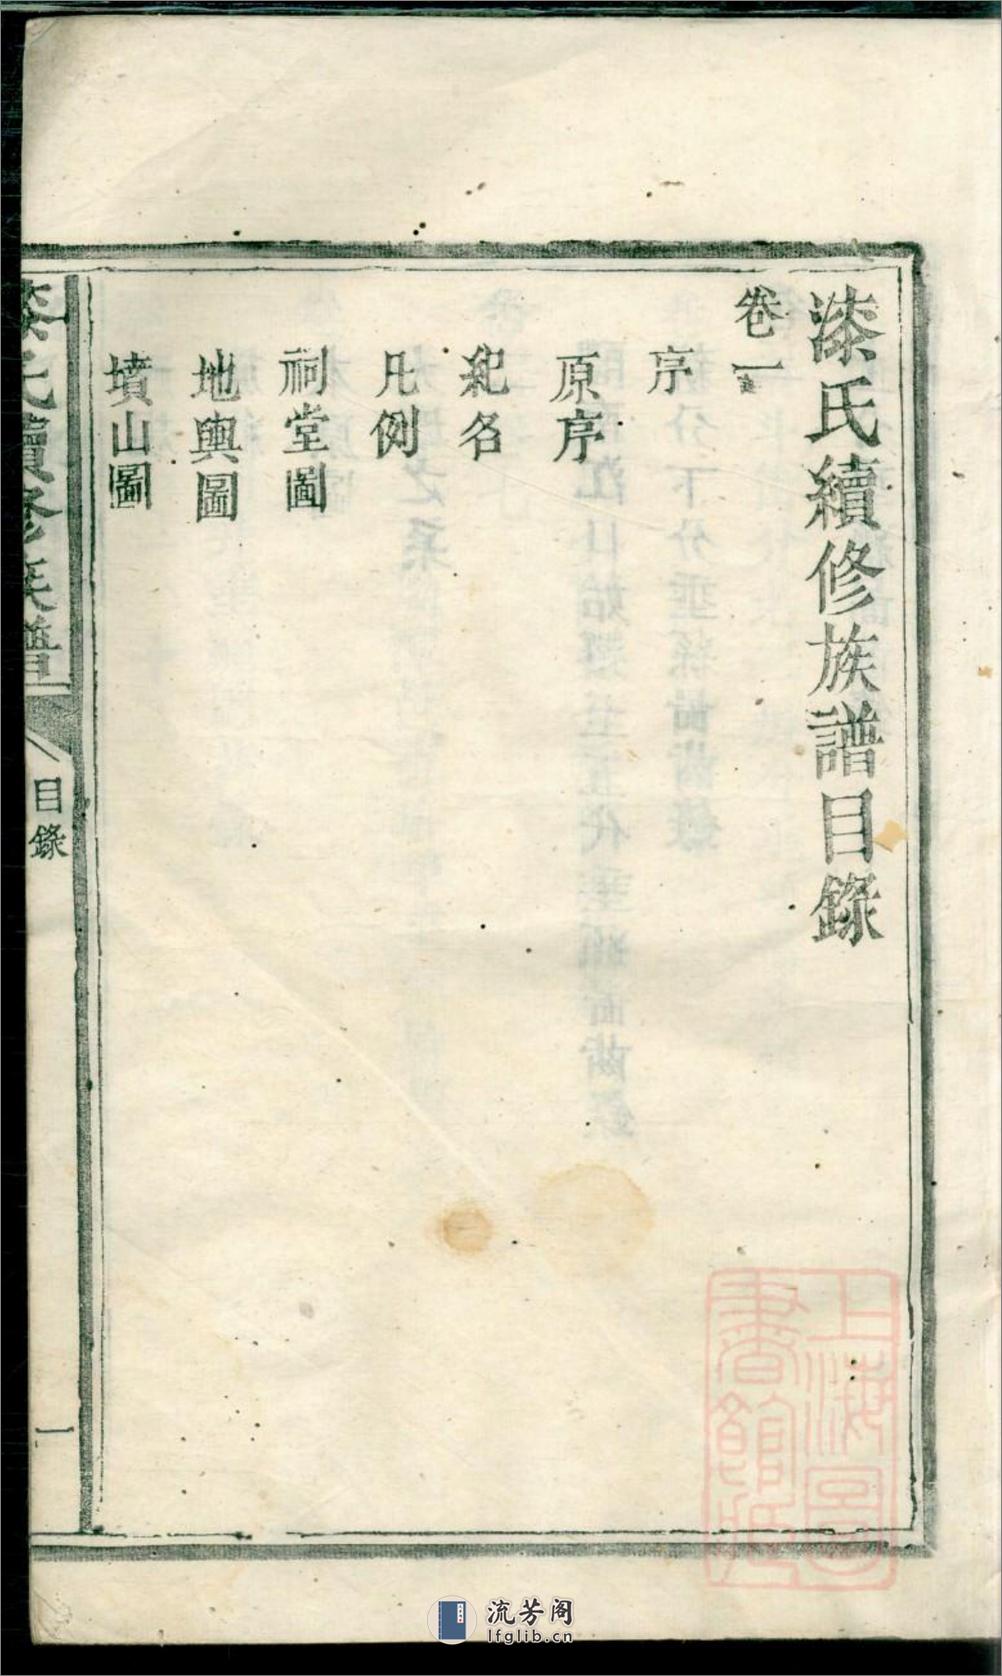 漆氏續修族譜目錄
卷一
序
原序
紀名
凡例
祠堂圖
地輿圖
墳山圖
漆氏續修族譜
目錄
一
上海圖
書館藏
流芳阁
lfglib.cn